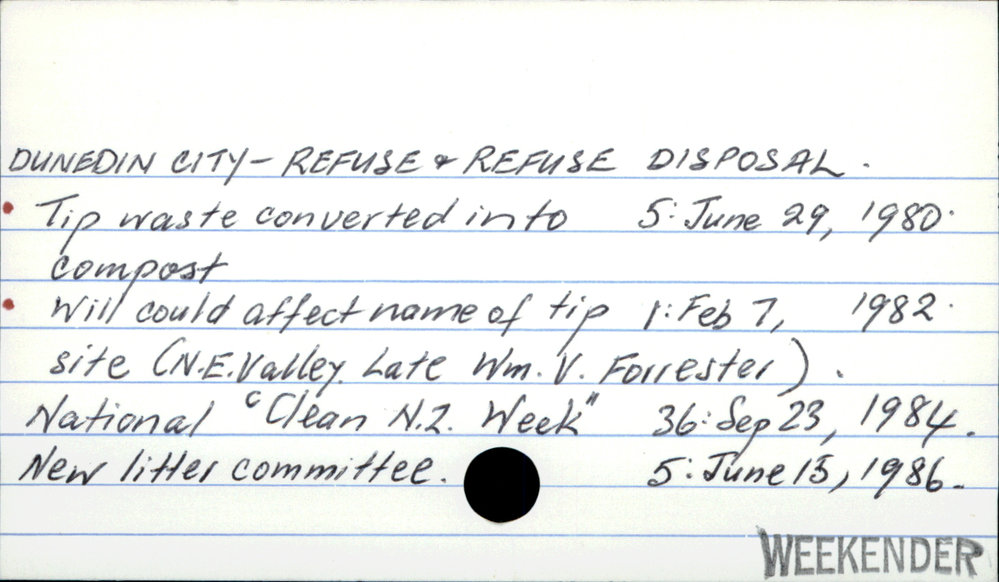 DUNEDIN CITY - REFUSE & REFUSE DISPOSAL.
Tip waste converted into 5: June 29, 1980.
compost
Will could affect name of tip 1: Feb 7, 1982.
site (N.E. Valley. Late Wm. V. Forrester).
National "Clean N.Z. Week" 36: Sep 23, 1984.
New litter committee. 5: June 15, 1986.
WEEKENDER